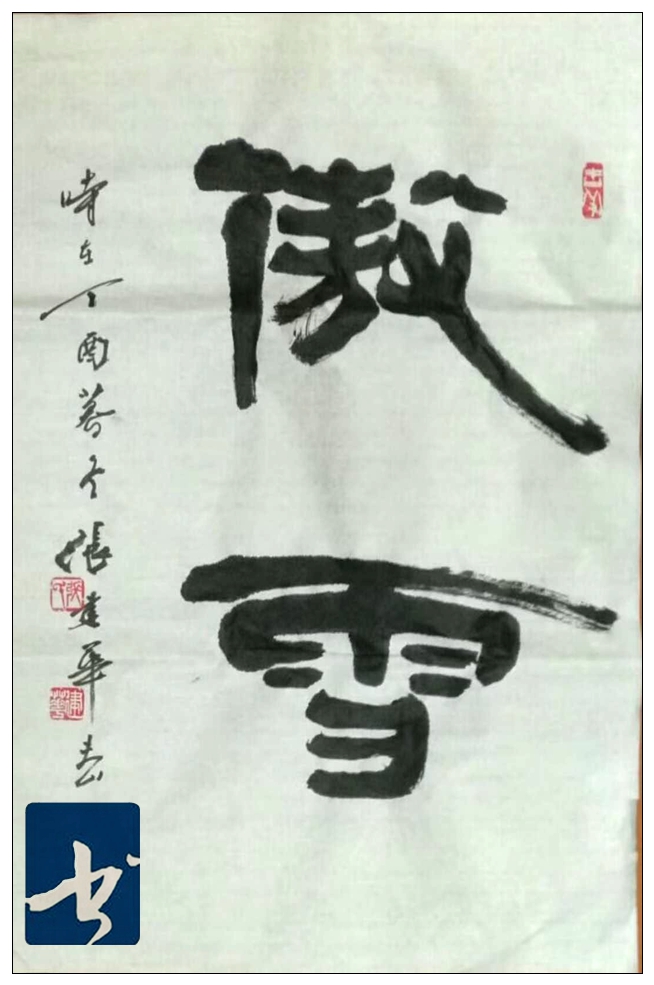 傲雪
時在丁酉暮冬張建華書
书